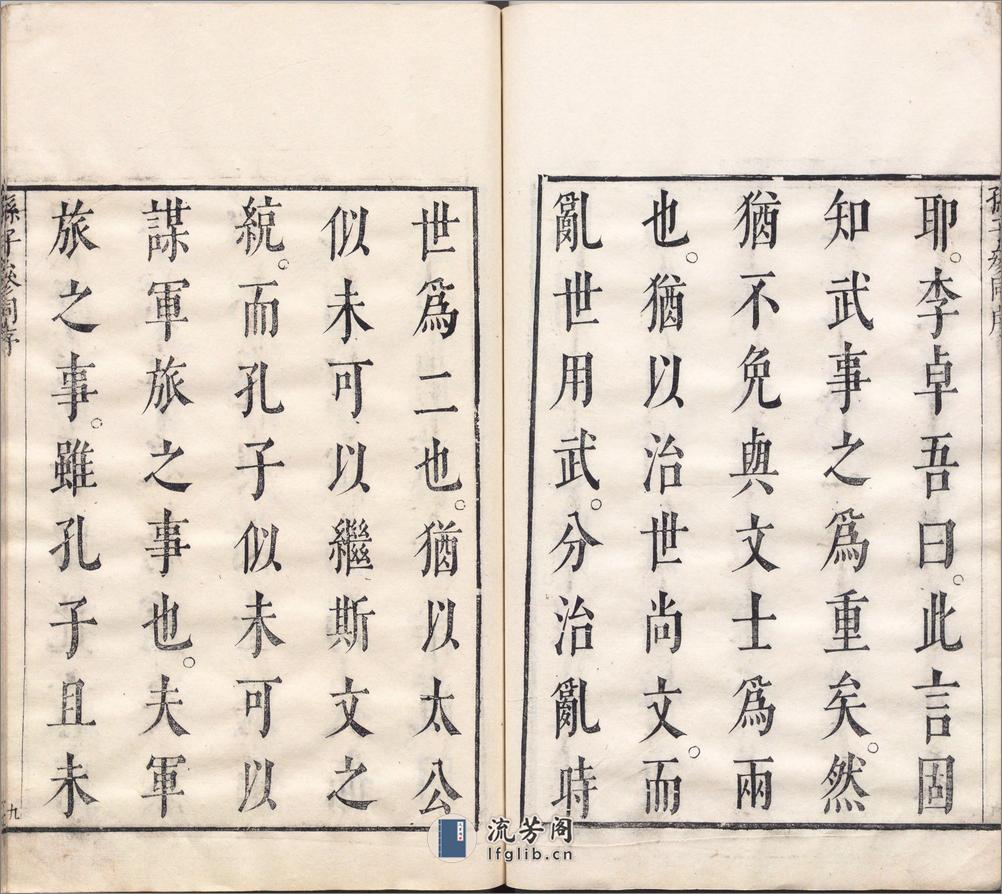 耶。李卓吾曰。此言固
知武事之爲重矣。然
猶不免與文士爲兩
也。猶以治世尚文。而
亂世用武。分治亂時
世爲二也。猶以太公
似未可以繼斯文之
統。而孔子似未可以
謀軍旅之事也。夫軍
旅之事。雖孔子且未
孫子參同序
九
流芳阁
lfglib.cn